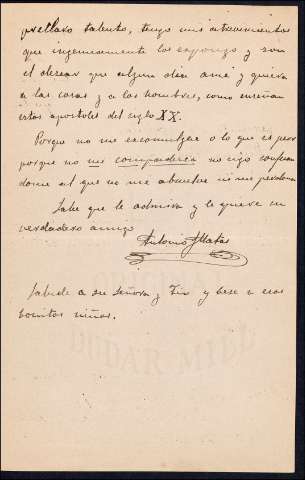 preclaro talento, tengo mis atrevimientos
que ingenuamente los expongo y son
el desear que algun dia ame y quiera
a las cosas y a los hombres, como enseñan
estos apostoles del siglo XX.
Porque no me excomulgue o lo que es peor
porque no me compadezca no sigo confesan
dome al que no me absuelve ni me perdona.
Sabe que le admira y le quiere su
verdadero amigo
Antonio Matas
Salude a su Señora y Tia y bese a esos
bonitos niños.
ORIGINAL
DUDAR MILL